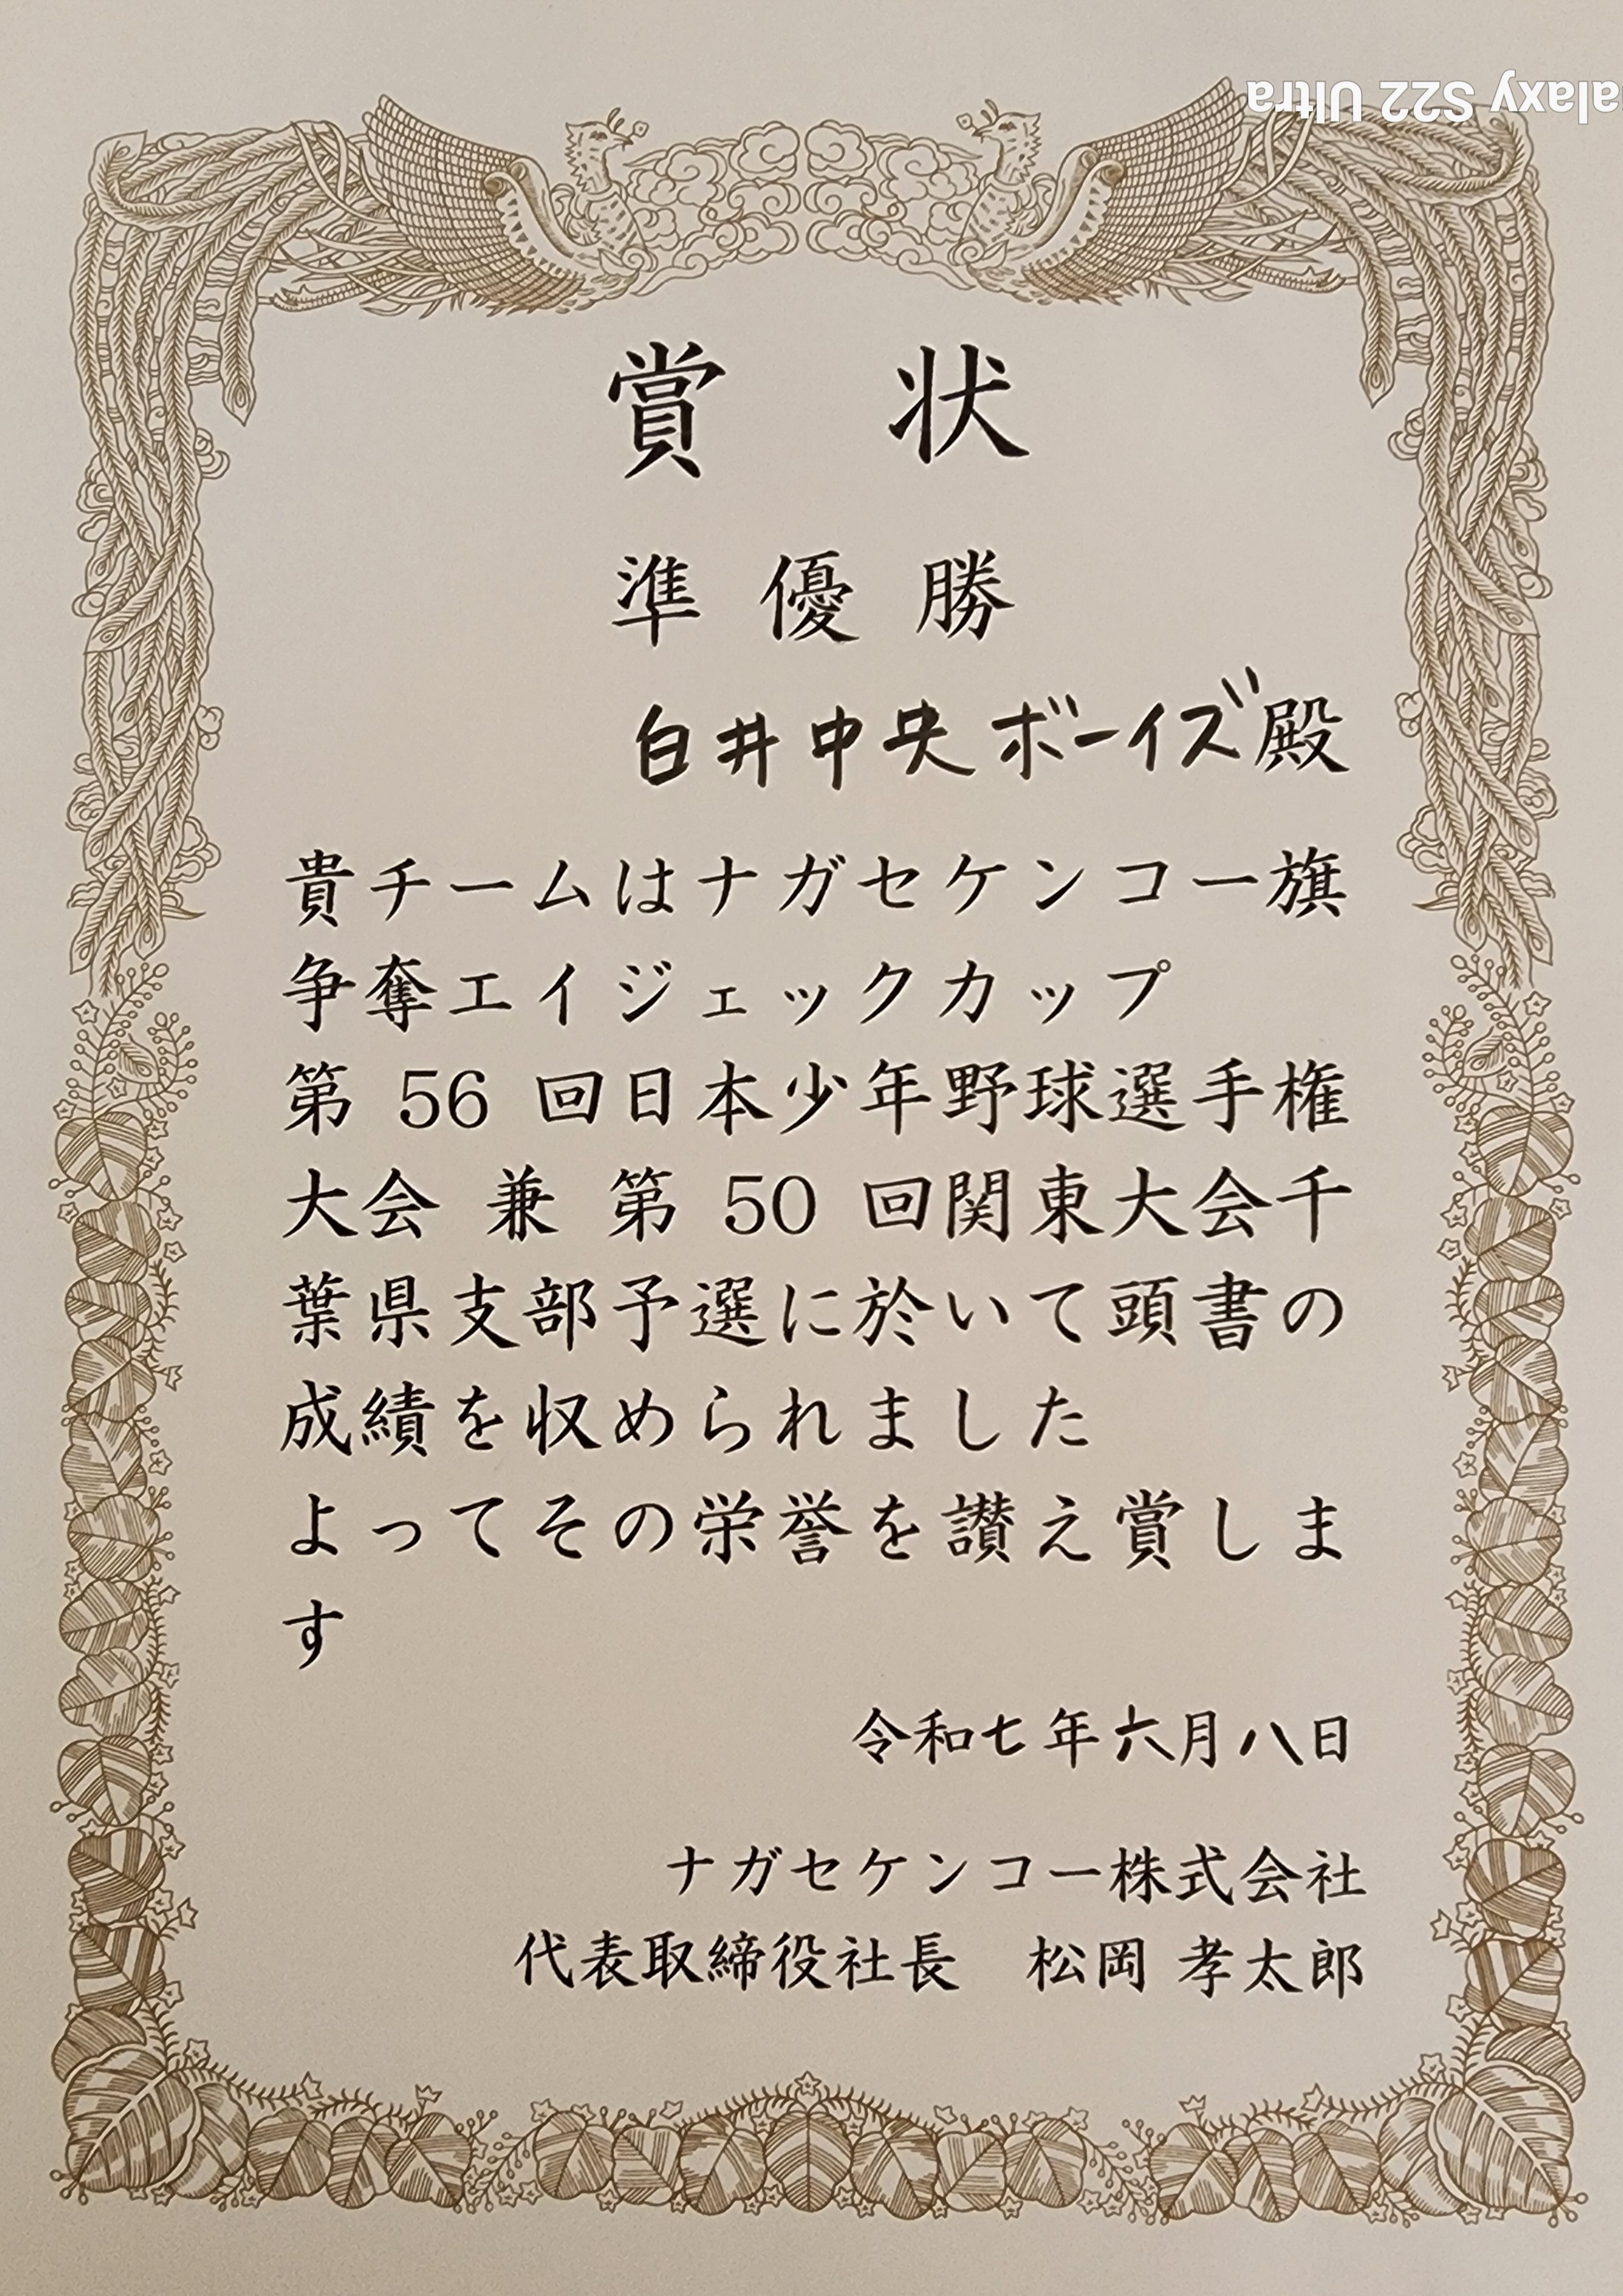 alaxy S22 Ultra
賞 状
準優勝
白井中央ボーイズ殿
貴チームはナガセケンコー旗
争奪エイジェックカップ
第 56 回日本少年野球選手権
大会 兼 第 50 回関東大会千
葉県支部予選に於いて頭書の
成績を収められました
よってその栄誉を讃え賞しま
す
令和七年六月八日
ナガセケンコー株式会社
代表取締役社長　松岡 孝太郎